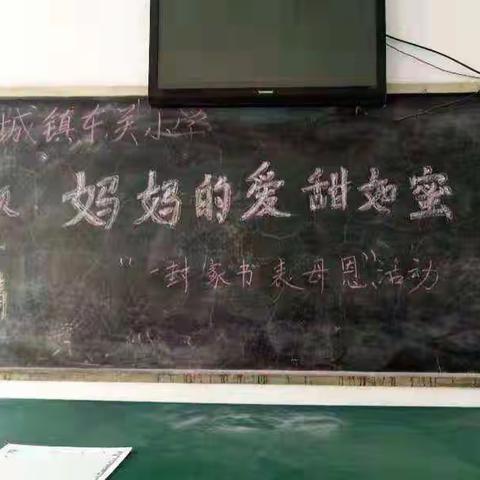 城镇车关小学
妈妈的爱甜如蜜
“一封家书表母恩”活动